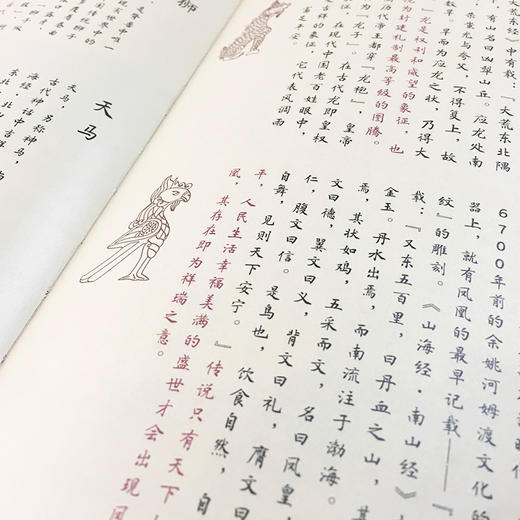 大荒东经》中有载：『大荒东北隅
有山名曰凶犁土丘。应龙处南
尤与夸父，不得复上，故
数旱。旱而为应龙之状，乃得大
』龙是权利和威望的象征，也
封建礼制最高等级的图腾。
历代帝王都穿『龙袍』，皇帝
为『龙子』。在古代龙即皇权
在现代中国老百姓眼中，
祥的象征，它代表风调雨
6700年前的余姚河姆渡文化的
器上，就有凤凰的最早记载——
纹』的雕刻。《山海经·南山经》
载：『又东五百里，曰丹血之山，其
金玉。丹水出焉，而南流注于渤海。
焉，其状如鸡，五采而文，名曰凤皇，
文曰德，翼文曰义，背文曰礼，膺文曰
仁，腹文曰信。是鸟也，饮食自然，自
自舞，见则天下安宁。』传说只有天下
平，人民生活幸福美满的盛世才会出现凤
凰，其存在即为祥瑞之意。
天马
天马，另称神马
古代神话
海经·中
东北